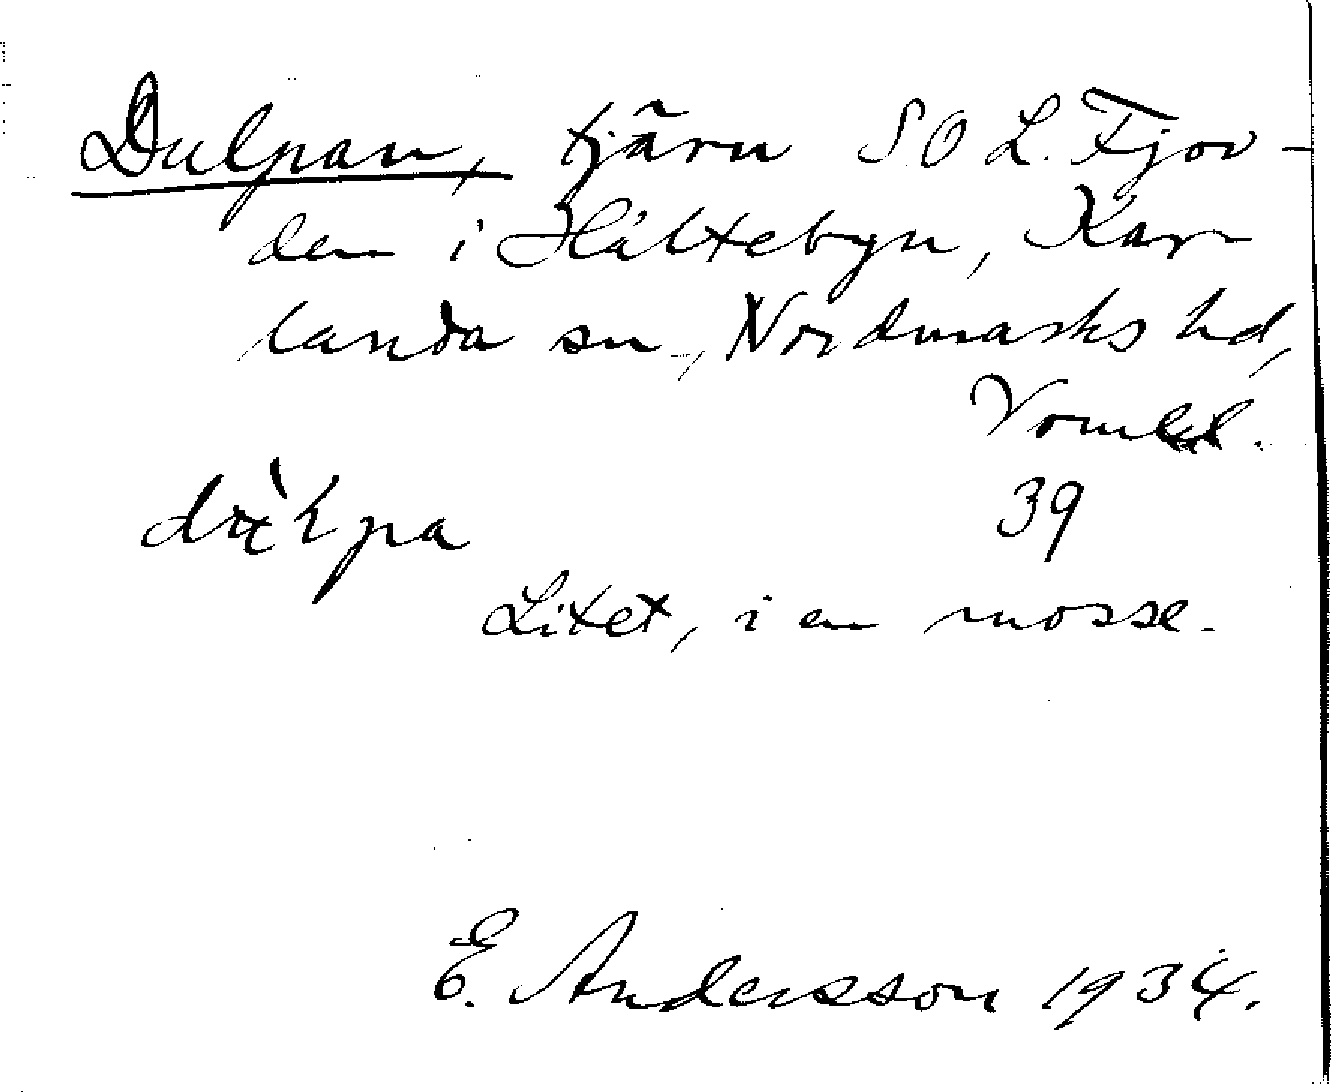 Dulpan, tjärn SO L. Fjor-
den i Håltebyn, Kar-
landa sn., Nordmarks hd,
Vormld.
39
Litet, i en mosse.
E. Andersson 1934.